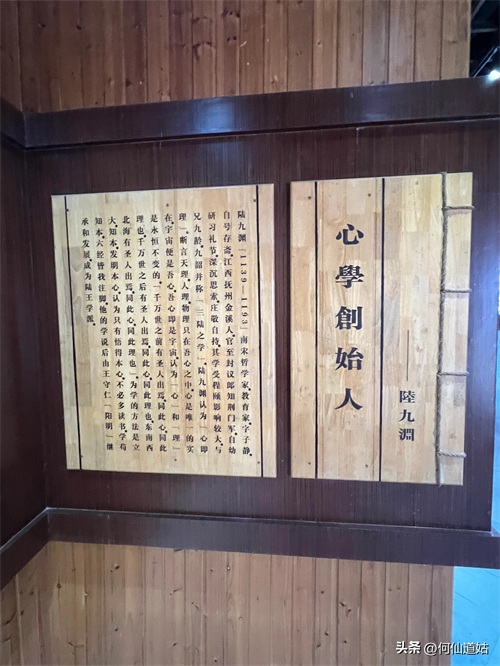 心學創始人
陸九淵
陆九渊（1139-1193）南宋哲学家、教育家，字子静，
自号存斋，江西抚州金溪人，官至封议郎知荆门军，自幼
研习礼节，深沉思索，庄敬自持，其学受程颐影响较大，与
兄九龄、九韶并称「三陆之学」。陆九渊认为「心即
理」，断言天理、人理、物理只在吾心之中，心是唯一的实
在，宇宙便是吾心，吾心即是宇宙，认为「心」和「理」
是永恒不变的，千万世之前有圣人出焉，同此心，同此
理也，千万世之后有圣人出焉，同此心同此理也，东南西
北海有圣人出焉，同此心，同此理也。为学的方法是立
大、知本、发明本心，认为只有悟得本心，不必多读书，学苟
知本，六经皆我注脚。他的学说后由王守仁（阳明）继
承和发展，成为陆王学派。
头条 @何仙道姑